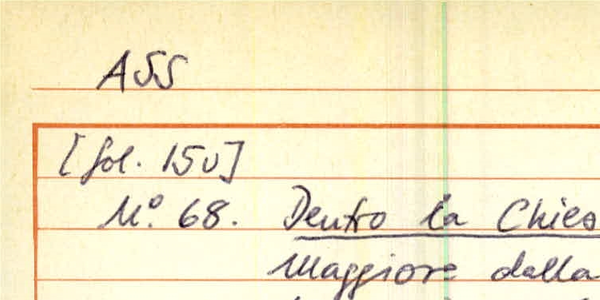 ASS
[fol. 15v]
N.º 68. Dentro la Chies
Maggiore dalla